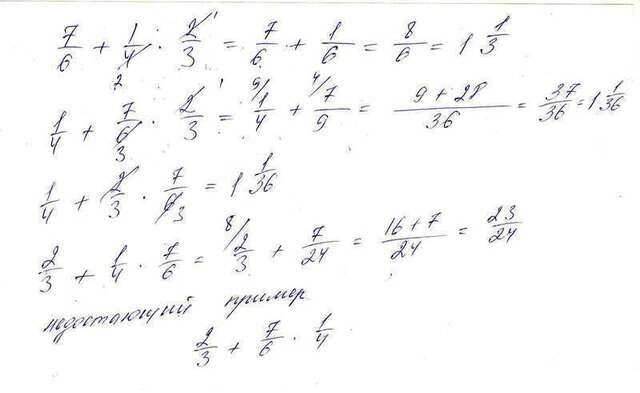 7/6 + 1/4 · 2/3 = 7/6 + 1/6 = 8/6 = 1 1/3
1/4 + 7/6 · 2/3 = 1/4 + 7/9 = (9 + 28)/36 = 37/36 = 1 1/36
1/4 + 2/3 · 7/6 = 1 1/36
2/3 + 1/4 · 7/6 = 2/3 + 7/24 = (16 + 7)/24 = 23/24
недостающий пример
2/3 + 7/6 · 1/4